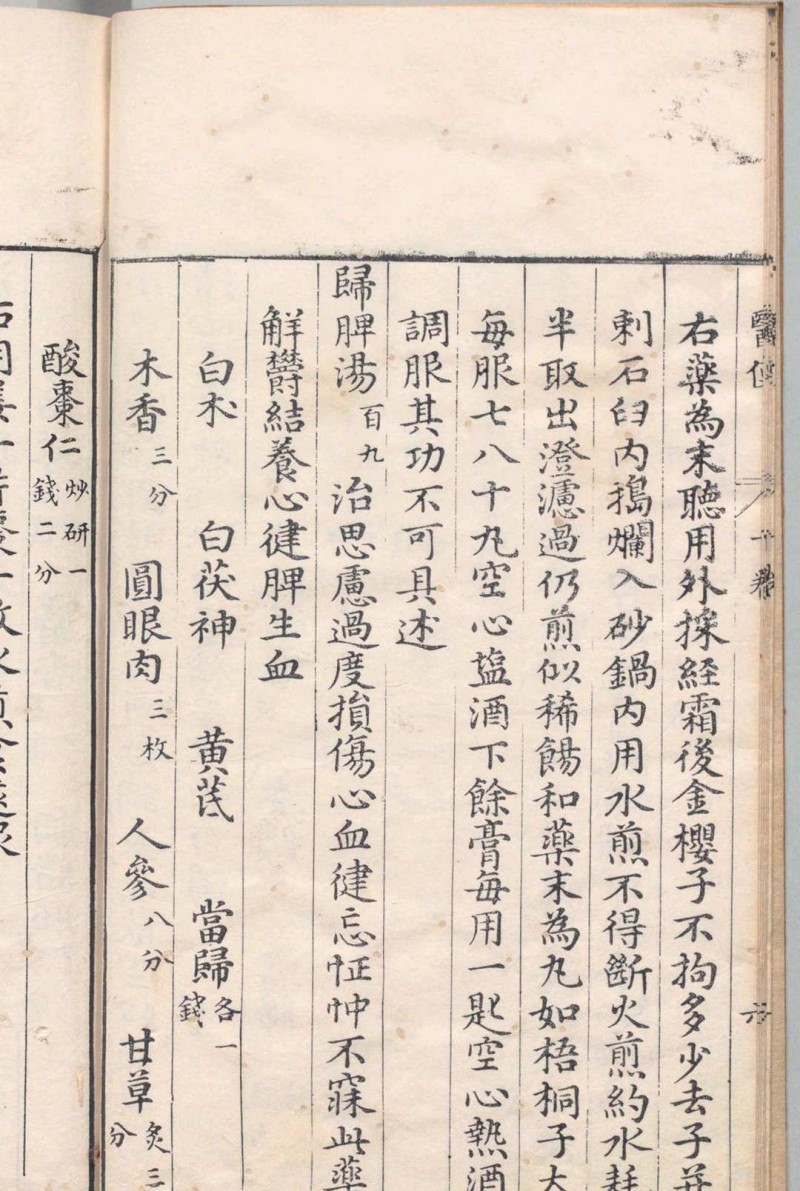 醫便 二卷 六
右藥為末聴用外採経霜後金櫻子不拘多少去子并
刺石臼内搗爛入砂鍋内用水煎不得斷火煎約水耗
半取出澄濾過仍煎似稀餳和藥末為丸如梧桐子大
每服七八十丸空心塩酒下餘膏每用一匙空心熱酒
調服其功不可具述
歸脾湯 百九 治思慮過度損傷心血健忘怔忡不寐此藥
解欝結養心健脾生血
白术 白茯神 黄茋 當歸各一錢
木香三分 圓眼肉三枚 人參八分 甘草炙三分
酸棗仁炒研一錢二分
右用姜